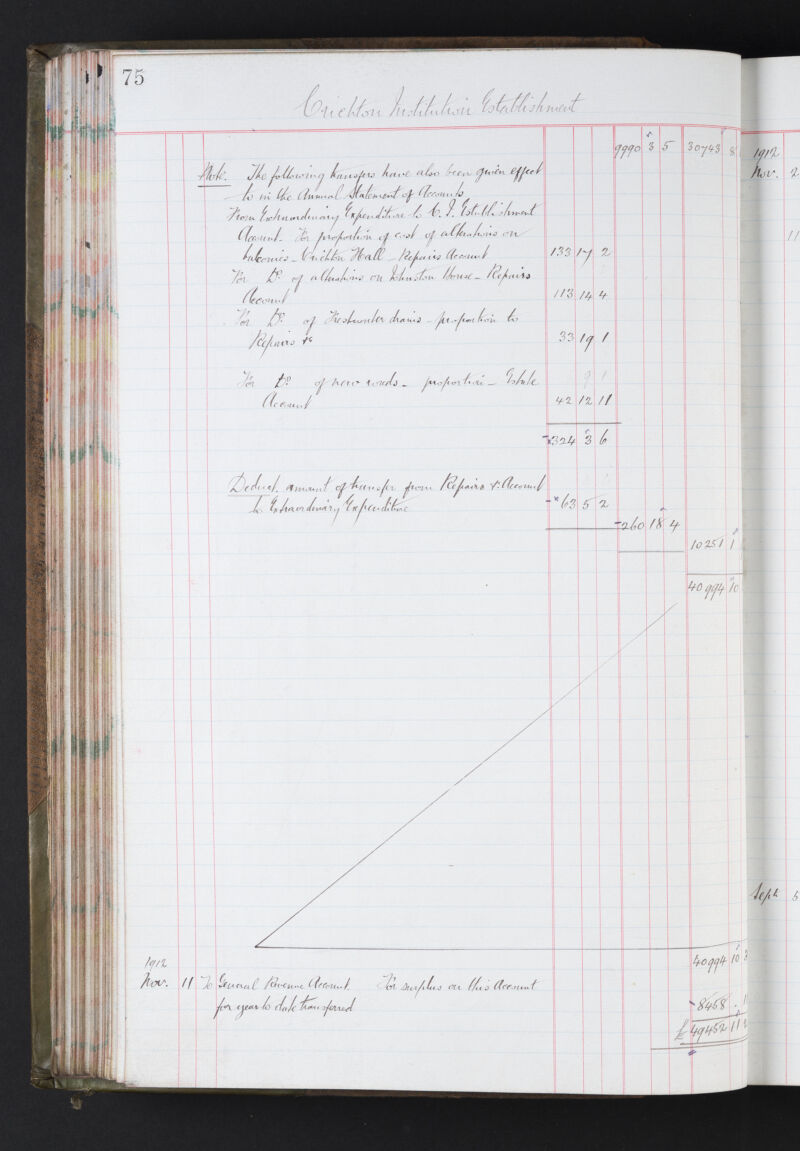 75
Crichton Institution Establishment
9990 3 5 30743 8
Note. The following transfers have also been given effect
to in the Annual Statement of Accounts
From Extraordinary Expenditure to C. I. Establishment
Account. For proportion of cost of alterations on
balconies - Crichton Hall - Repairs Account 133 17 2
For Do. of alterations on Johnston House - Repairs
Account 113 14 4
For Do. of Freshwater drains - proportion to
Repairs &c 33 19 1
For Do. of new roads - proportion - Estate
Account 42 12 11
324 3 6
Deduct. amount of transfer from Repairs &c Account
to Extraordinary Expenditure 63 5 2
260 18 4
10251 1
40994 10
40994 10 3
1912
Nov. 11 To General Revenue Account. For surplus on this Account
for year to date transferred
8458 . 11
£ 49452 11 2
1912
Nov. 2
11
Sept 5